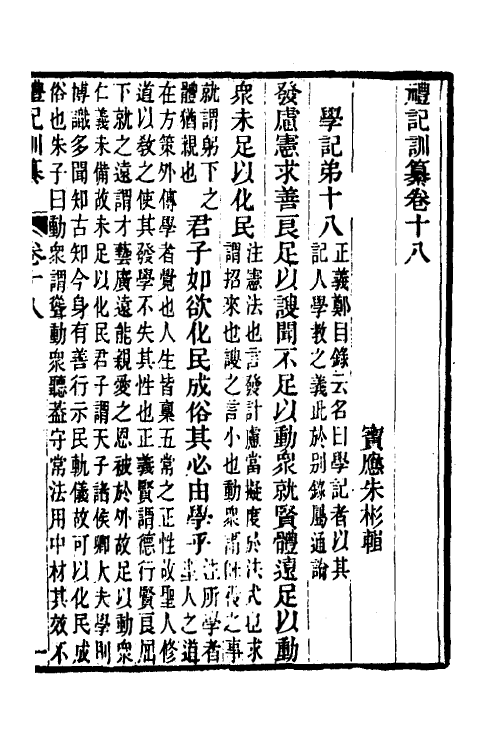 禮記訓纂卷十八
寶應朱彬輯
學記弟十八
正義鄭目錄云名曰學記者以其
記人學教之義此於別錄屬通論
發慮憲求善良足以謏聞不足以動衆就賢體遠足以動
衆未足以化民
注憲法也言發計慮當擬度於法式也求
謂招來也謏之言小也動衆謂師役之事
就謂躬下之
體猶親也
君子如欲化民成俗其必由學乎
注所學者
聖人之道
在方策外傳學者覺也人生皆稟五常之正性故聖人修
道以教之使其發學不失其性也正義賢謂德行賢良屈
下就之遠謂才藝廣遠能親愛之恩被於外故足以動衆
仁義未備故未足以化民君子謂天子諸侯卿大夫學則
博識多聞知古知今身有善行示民軌儀故可以化民成
俗也朱子曰動衆謂聳動衆聽葢守常法用中材其效不
禮記訓纂
卷十八
一